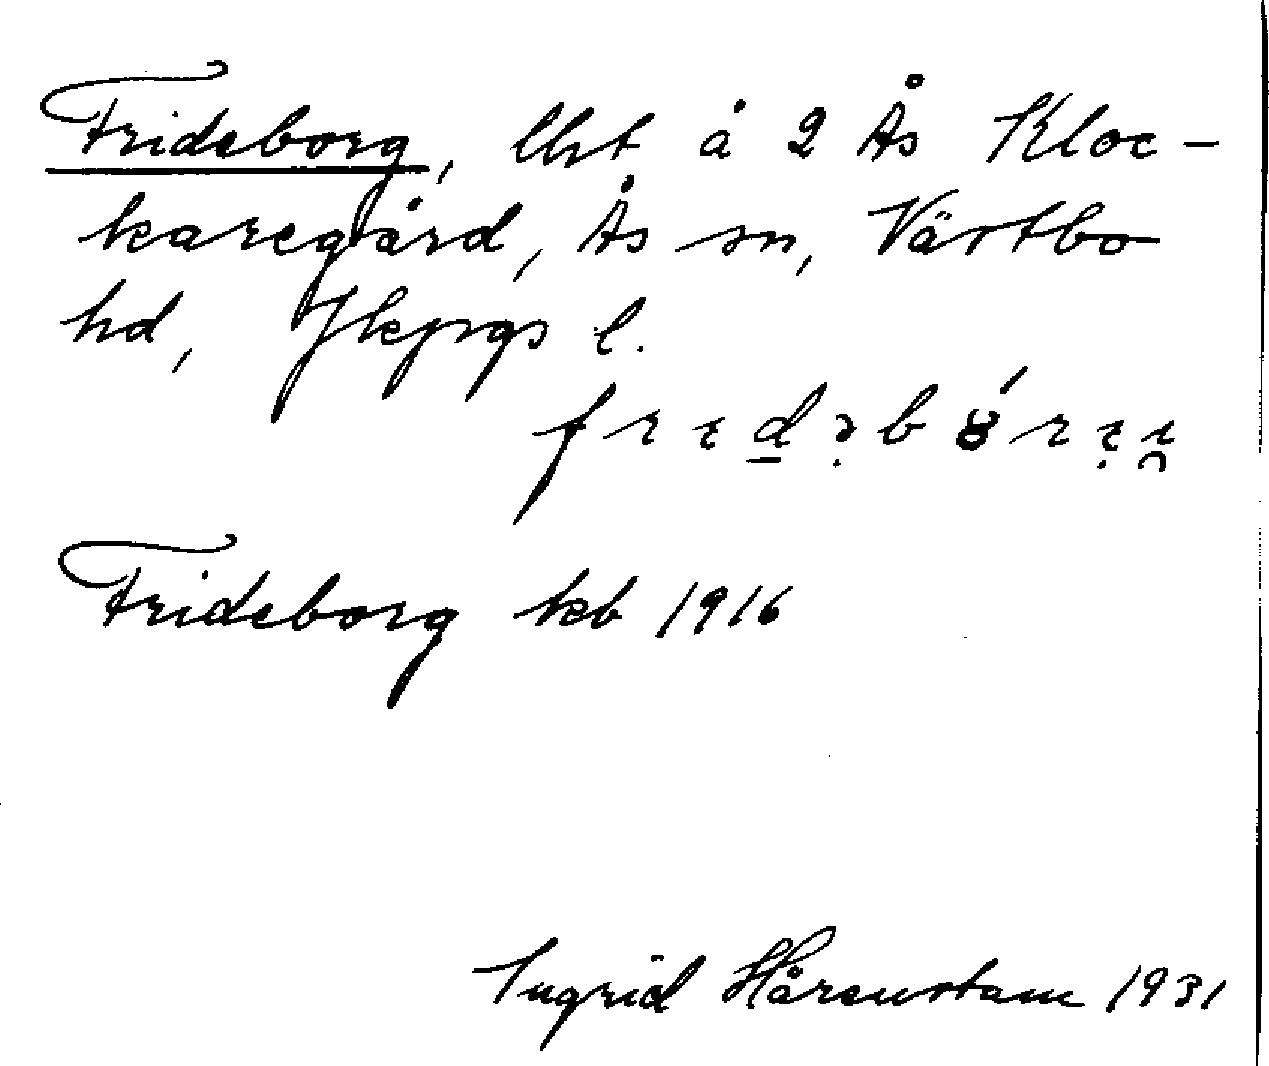 Frideborg, lht å 2 Ås Kloc-
karegård, Ås sn, Västbo
hd, Jkpgs l.
Frideborg kb 1916
Ingrid Härenstam 1931